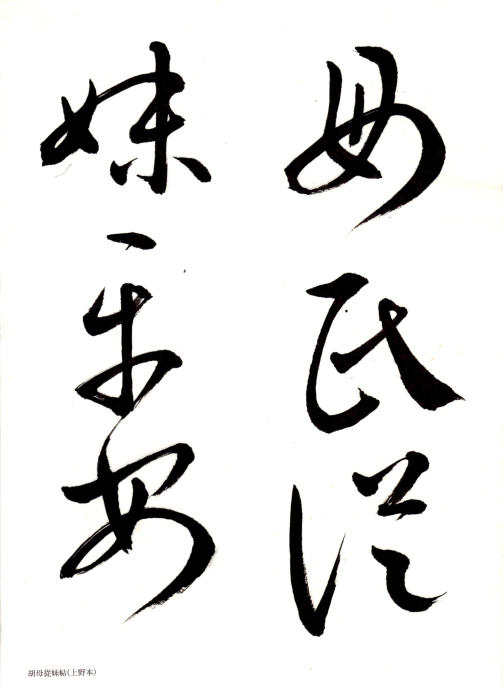 母氏従
妹平安
胡母從妹帖(上野本)